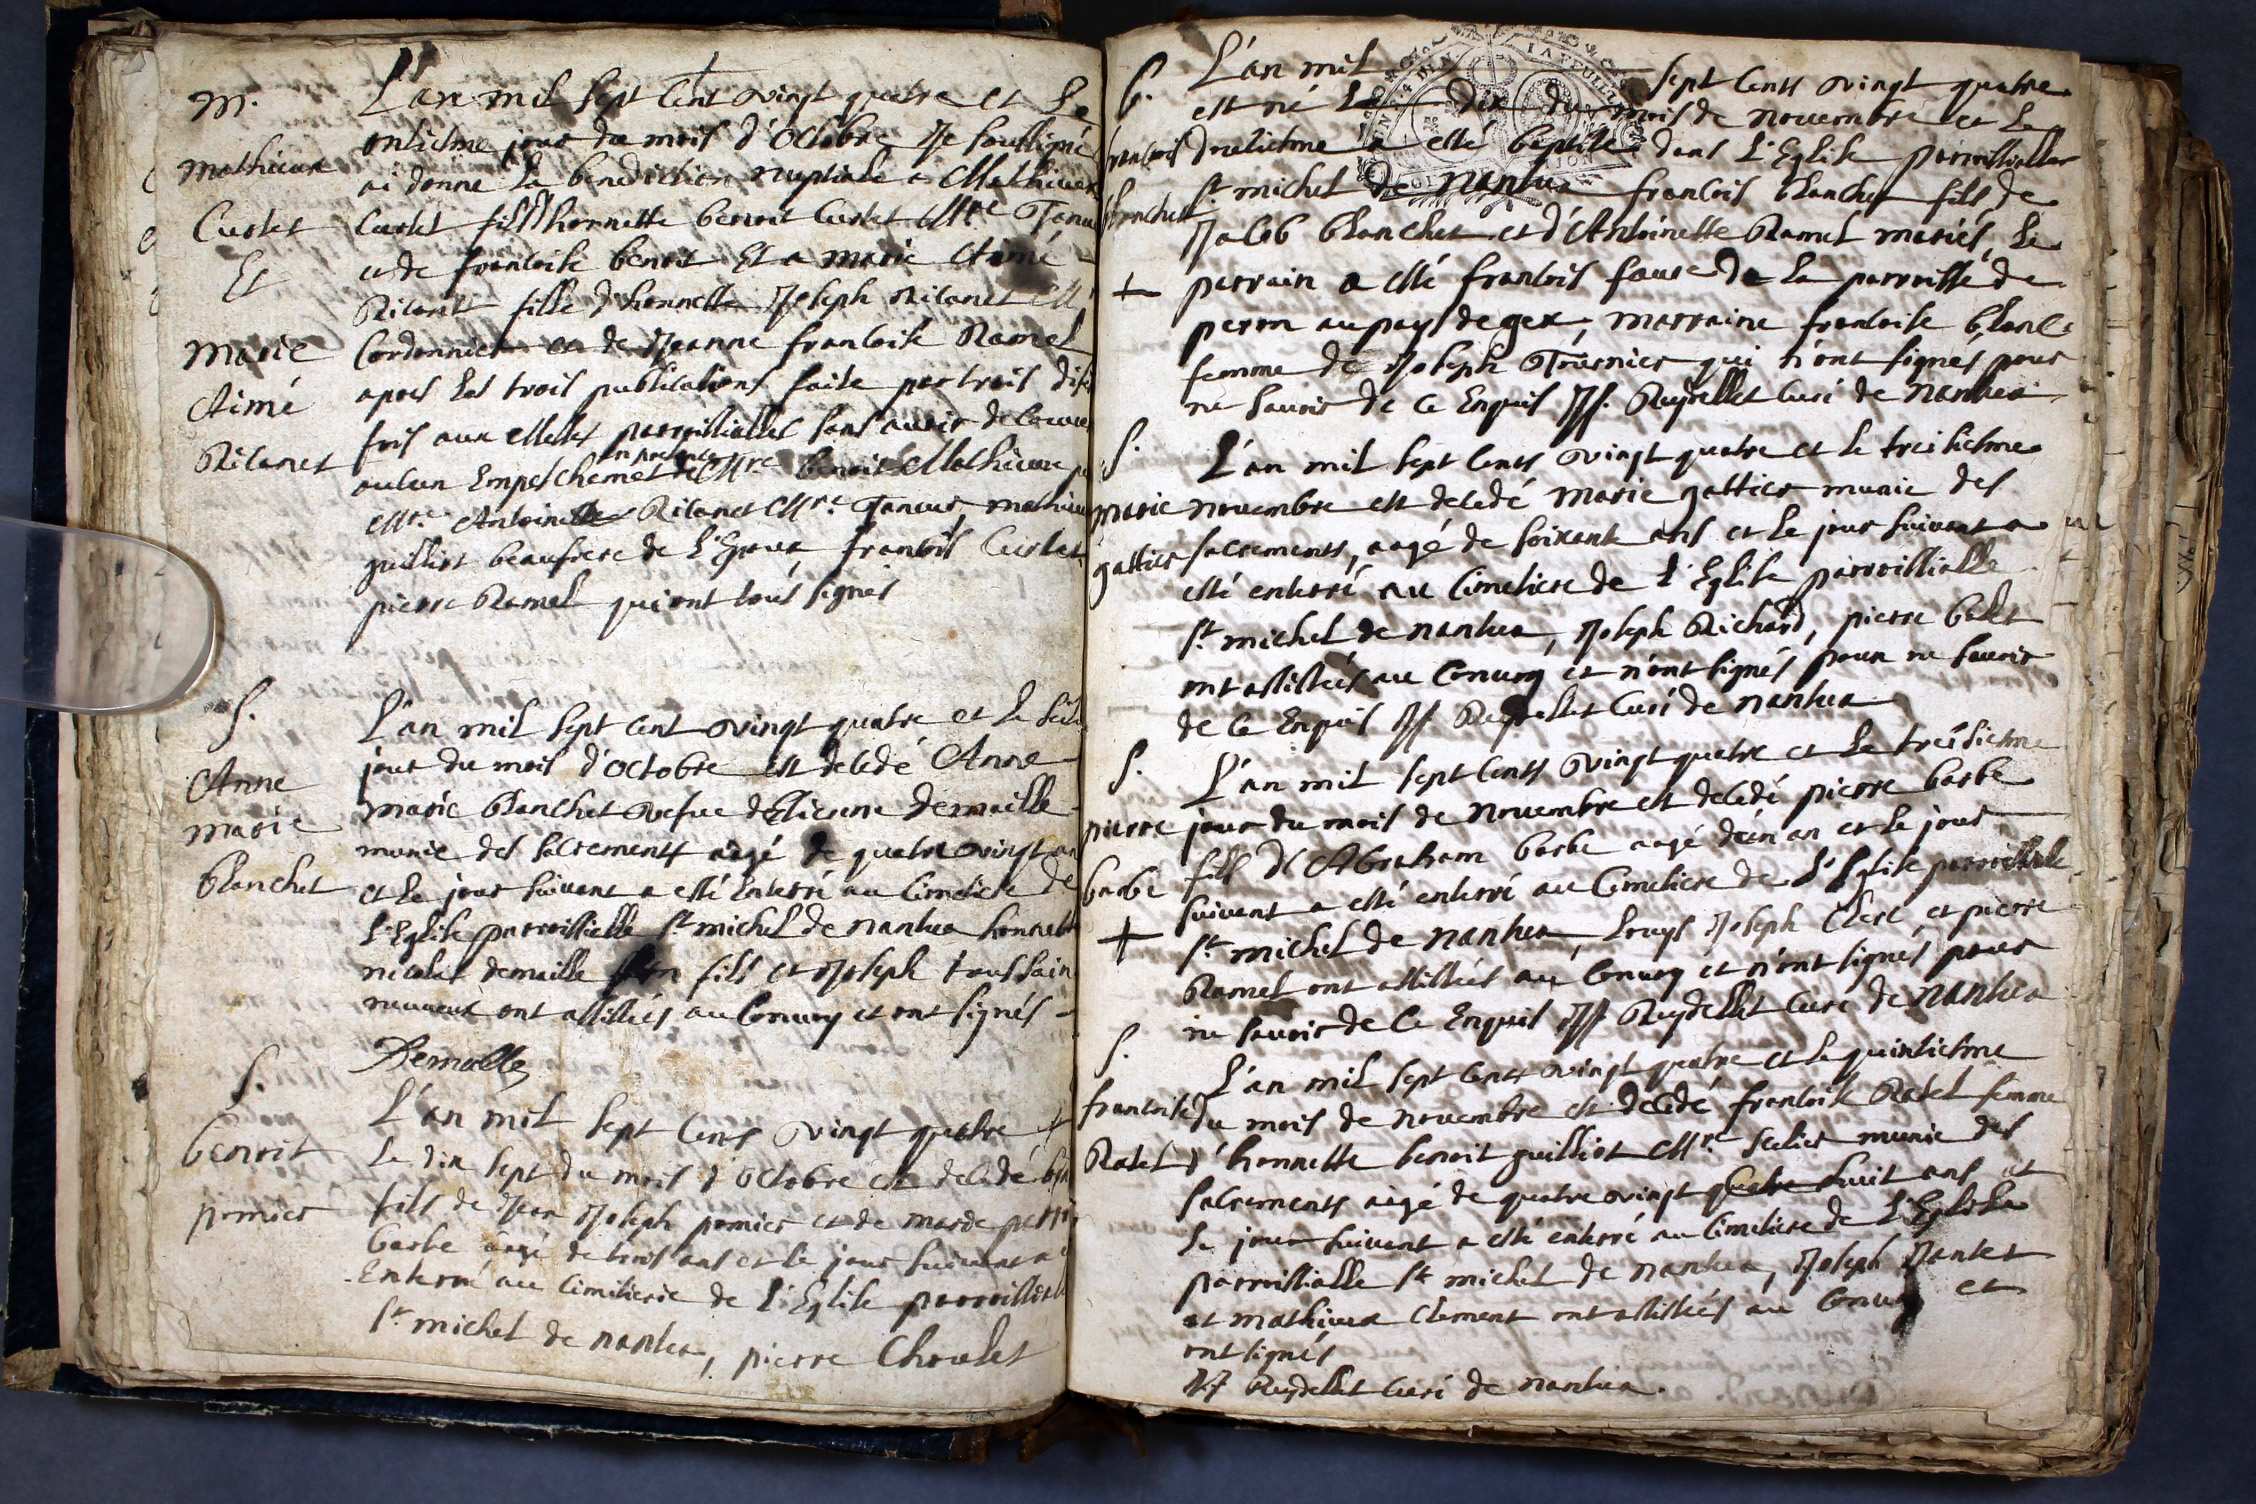 m.
mathieux
Curlet
Et
marie
Aimé
Rilanet
L'an mil sept Cent vingt quatre et Le
onsiesme jour du mois d'Octobre Je soussigné
ai donné la benediction nuptiale a Mathieux
Curlet fils d'honnette benoit Curlet Mre Tanneu
et de francoise benoit Et a marie Aimé
Rilanet fille d'honnette Joseph Rilanet Mre
Cordonnier et de Jeanne francoise Ramel
apres les trois publications faite par trois dise
fois aux Messes parroissialles sans avoir decouve
aucun Empeschemet en presence de Mre benoit Mathieux
Mre Antoine Rilanet Mre Taneur, mathieux
guilliot beaufrere de L'Epoux, francois Curlet
pierre Ramel qui ont tous signés
S.
Anne
marie
blanchet
L'an mil sept cent vingt quatre et le seis
jour du mois d'Octobre est decedé Anne
marie blanchet vefue de Etienne demaille
munie des sacrements aagé de quatre vingt an
et le jour suivant a esté Enterré au Cimetiere de
L'Eglise parroissialle St michel de nantua honnette
nicolas demaille son fils et Joseph toussain
ont assistés au Convoy et ont signés
Demalle
S.
benoit
pomier
L'an mil sept Cens vingt quatre et
Le dix sept du mois d'octobre est decedé ben
fils de Jean Joseph pomier et de marie
barbe aagé de trois ans et le jour suivant a
Enterré au Cimitierie de L'Eglise parroissialle
St michel de nantua, pierre Choulet
b.
francois
blanchet
+
L'an mil sept Cents vingt quatre
est né Le dix du mois de novembre et Le
douziesme a esté baptisé dans L'Eglise parroissialle
St michel de nantua francois blanchet fils de
Jacob blanchet et d'Antoinette Ramel mariés, Le
parrain a esté francois faure de La parroisse de
peron au pays de gex, marraine francoise blanc
femme de Joseph Tournier qui n'ont signés pour
ne savoir de ce Enquis JJ. Reydellet Curé de nantua
S.
marie
gattier
L'an mil sept Cents vingt quatre et le treisiesme
novembre est decedé marie gattier munie des
sacrements, aagé de soixante ans et le jour suivant a
esté enterré au Cimetiere de L'Eglise parroissialle
St michel de nantua, Joseph Richard, pierre
ont assistés au Convoy et n'ont signés pour ne savoir
de ce Enquis JJ Reydellet Curé de nantua
S.
pierre
barbe
+
L'an mil sept Cents vingt quatre et Le treisiesme
jour du mois de Novembre est decedé pierre barbe
fils d'Abraham barbe aagé d'un an et Le jour
suivant a esté enterré au Cimetiere de L'Eglise parroissialle
St michel de nantua, Louys Joseph Clerc, et pierre
Ramel ont assistés au Convoy et n'ont signés pour
ne savoir de ce Enquis JJ Reydellet Curé de nantua
S.
francoise
Ratel
L'an mil sept Cents vingt quatre et Le quinsiesme
du mois de novembre est decedé francoise Ratel femme
d'honnette benoit guilliot Mre Selier munie des
sacrements aagé de quatre vingt quatre huit ans et
Le jour suivant a esté enterré au Cimetiere de L'Eglise
parroissialle St michel de nantua, Joseph Jantet
et mathieux Clement ont assistés au Convoy et
ont signés
JJ Reydellet Curé de nantua.